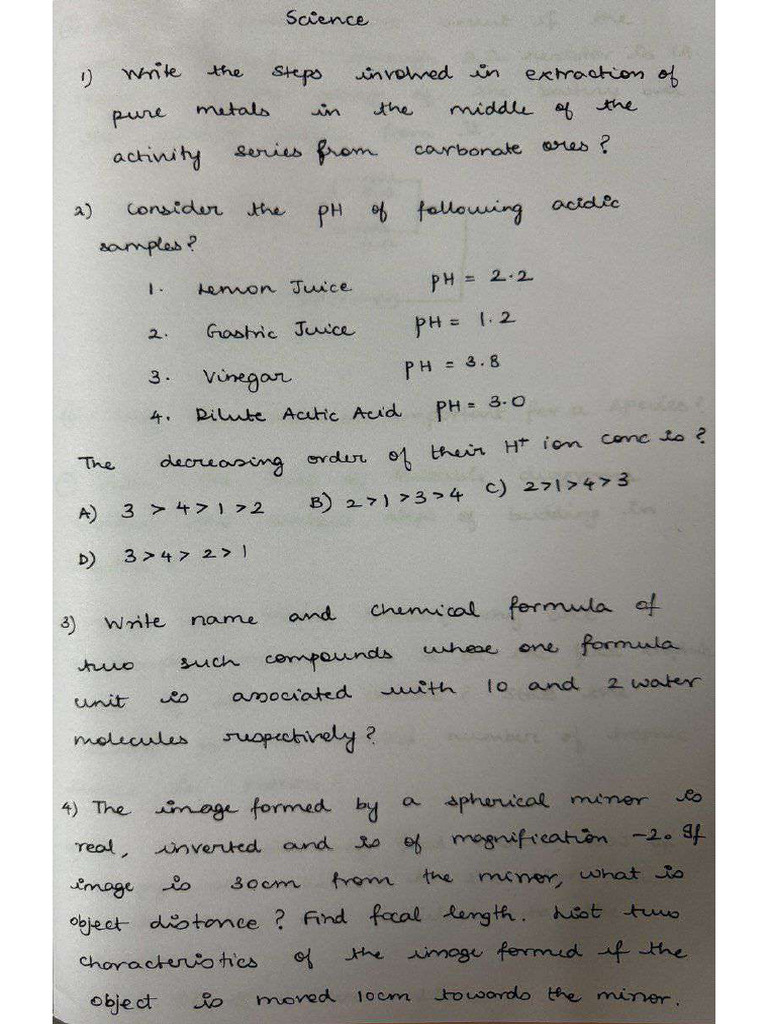 Science
1) Write the steps involved in extraction of
pure metals in the middle of the
activity series from carbonate ores?
2) Consider the pH of following acidic
samples?
1. Lemon Juice pH = 2.2
2. Gastric Juice pH = 1.2
3. Vinegar pH = 3.8
4. Dilute Acetic Acid pH = 3.0
The decreasing order of their H+ ion conc is?
A) 3 > 4 > 1 > 2 B) 2 > 1 > 3 > 4 C) 2 > 1 > 4 > 3
D) 3 > 4 > 2 > 1
3) Write name and chemical formula of
two such compounds whose one formula
unit is associated with 10 and 2 water
molecules respectively?
4) The image formed by a spherical mirror is
real, inverted and is of magnification -2. If
image is 30cm from the mirror, what is
object distance? Find focal length. List two
characteristics of the image formed if the
object is moved 10cm towards the mirror.